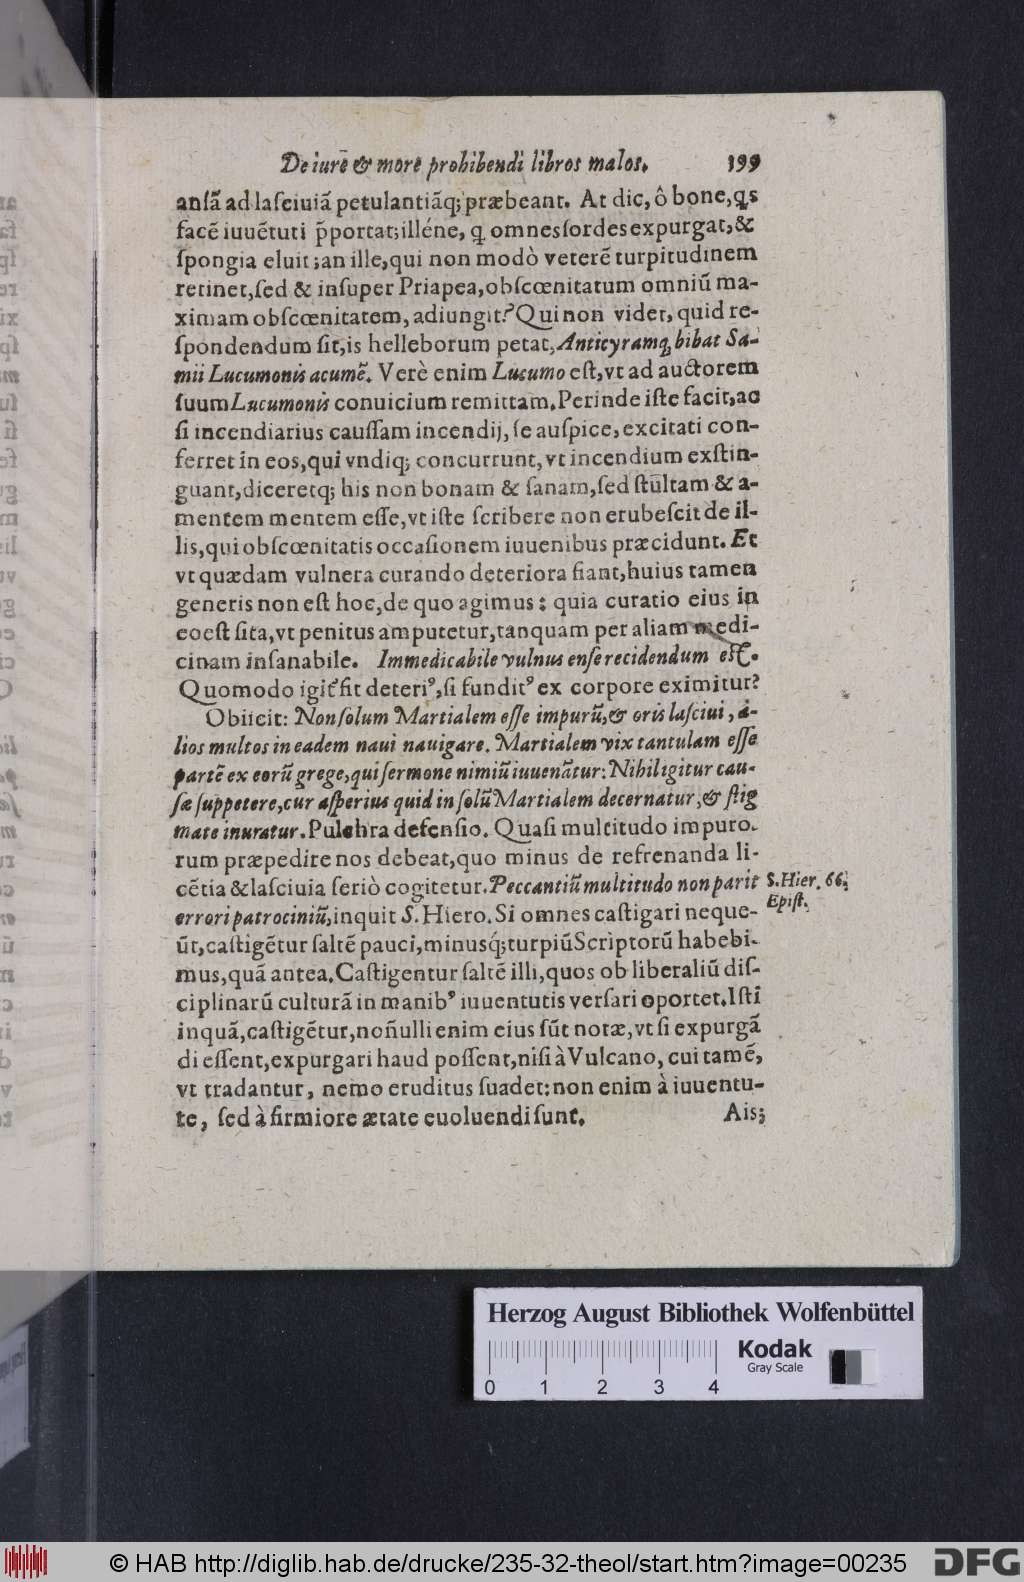 De iurē & morē prohibendi libros malos. 199
anſā ad laſciuiā petulantiāq; præbeant. At dic, ô bone, qs
facē iuuētuti p̄portat; illéne, q omnes ſordes expurgat, &
ſpongia eluit; an ille, qui non modò veterē turpitudinem
retinet, ſed & inſuper Priapea, obſcœnitatum omniū ma-
ximam obſcœnitatem, adiungit? Qui non videt, quid re-
ſpondendum ſit, is helleborum petat, Anticyramq; bibat Sa-
mii Lucumonis acumē. Verè enim Lucumo eſt, vt ad auctorem
ſuum Lucumonis conuicium remittam. Perinde iſte facit, ac
ſi incendiarius cauſſam incendij, ſe auſpice, excitati con-
ferret in eos, qui vndiq; concurrunt, vt incendium exſtin-
guant, diceretq; his non bonam & ſanam, ſed ſtultam & a-
mentem mentem eſſe, vt iſte ſcribere non erubeſcit de il-
lis, qui obſcœnitatis occaſionem iuuenibus præcidunt. Et
vt quædam vulnera curando deteriora fiant, huius tamen
generis non eſt hoc, de quo agimus: quia curatio eius in
eo eſt ſita, vt penitus amputetur, tanquam per aliam medi-
cinam inſanabile. Immedicabile vulnus enſe recidendum eſt.
Quomodo igit᷑ fit deteri⁹, ſi fundit⁹ ex corpore eximitur?
Obiicit: Non ſolum Martialem eſſe impurū, & oris laſciui, a-
lios multos in eadem naui nauigare. Martialem vix tantulam eſſe
partē ex eorū grege, qui ſermone nimiū iuuenātur: Nihil igitur cau-
ſæ ſuppetere, cur aſperius quid in ſolū Martialem decernatur, & ſtig
mate inuratur. Pulchra defenſio. Quaſi multitudo impuro-
rum præpedire nos debeat, quo minus de refrenanda li-
cētia & laſciuia ſeriò cogitetur. Peccantiū multitudo non parit
errori patrociniū, inquit S. Hiero. Si omnes caſtigari neque-
ūt, caſtigētur ſaltē pauci, minusq́; turpiū Scriptorū habebi-
mus, quā antea. Caſtigentur ſaltē illi, quos ob liberaliū diſ-
ciplinarū culturā in manib⁹ iuuentutis verſari oportet. Iſti
inquā, caſtigētur, noñulli enim eius ſūt notæ, vt ſi expurgā
di eſſent, expurgari haud poſſent, niſi à Vulcano, cui tamē,
vt tradantur, nemo eruditus ſuadet: non enim à iuuentu-
te, ſed à firmiore ætate euoluendi ſunt.
Ais;
S. Hier. 66.
Epiſt.
Herzog August Bibliothek Wolfenbüttel
Kodak
Gray Scale
0 1 2 3 4
© HAB http://diglib.hab.de/drucke/235-32-theol/start.htm?image=00235
DFG